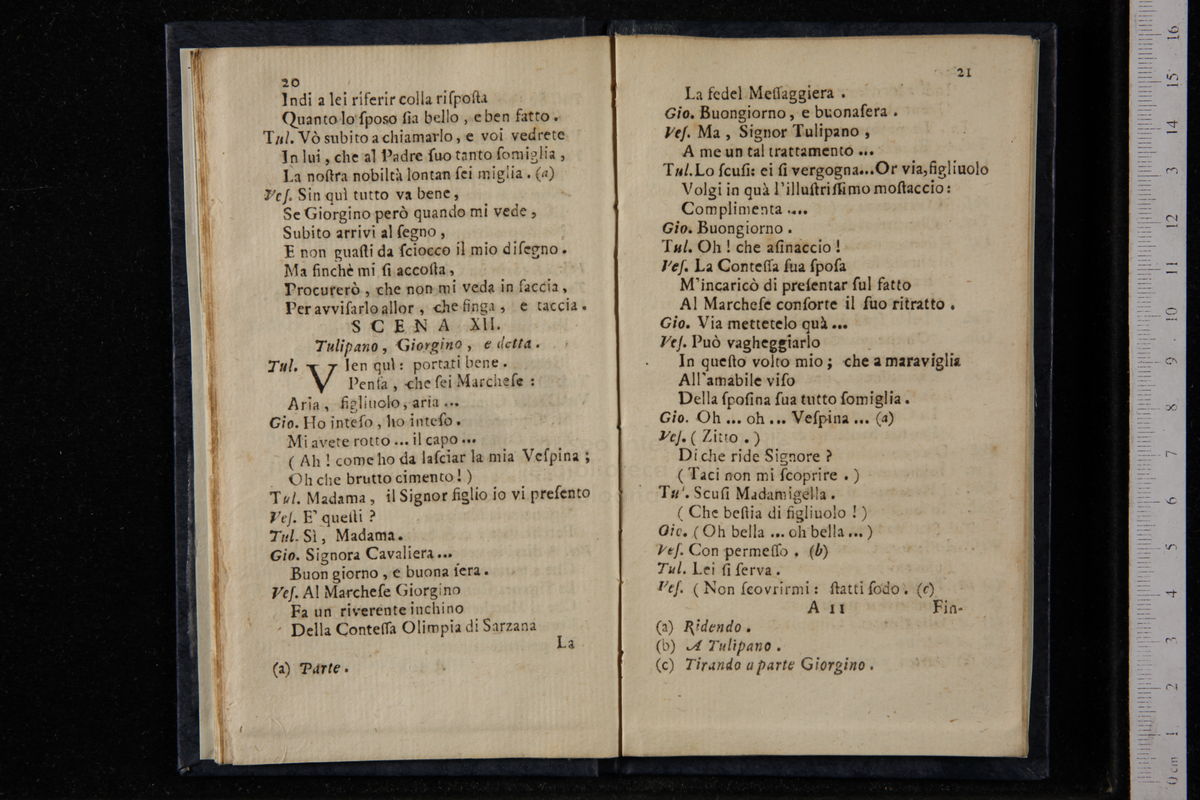 20
Indi a lei riferir colla riſpoſta
Quanto lo ſpoſo ſia bello , e ben fatto .
Tul. Vò ſubito a chiamarlo, e voi vedrete
In lui, che al Padre ſuo tanto ſomiglia ,
La noſtra nobiltà lontan ſei miglia . (a)
Veſ. Sin quì tutto va bene ,
Se Giorgino però quando mi vede ,
Subito arrivi al ſegno ,
E non guaſti da ſciocco il mio diſegno .
Ma finchè mi ſi accoſta ,
Procurerò , che non mi veda in faccia ,
Per avviſarlo allor , che finga , e taccia .
SCENA XII.
Tulipano, Giorgino, e detta.
Tul. Vien quì : portati bene .
Penſa , che ſei Marcheſe :
Aria , figliuolo, aria ...
Gio. Ho inteſo , ho inteſo .
Mi avete rotto ... il capo ...
( Ah ! come ho da laſciar la mia Veſpina ;
Oh che brutto cimento ! )
Tul. Madama , il Signor figlio io vi preſento
Veſ. E' queſti ?
Tul. Sì , Madama .
Gio. Signora Cavaliera ...
Buon giorno , e buona ſera .
Veſ. Al Marcheſe Giorgino
Fa un riverente inchino
Della Conteſſa Olimpia di Sarzana
La
(a) Parte .
21
La fedel Meſſaggiera .
Gio. Buongiorno , e buonaſera .
Veſ. Ma , Signor Tulipano ,
A me un tal trattamento ...
Tul. Lo ſcuſi: ei ſi vergogna...Or via, figliuolo
Volgi in quà l'illuſtriſſimo moſtaccio :
Complimenta ....
Gio. Buongiorno .
Tul. Oh ! che aſinaccio !
Veſ. La Conteſſa ſua ſpoſa
M'incaricò di preſentar ſul fatto
Al Marcheſe conſorte il ſuo ritratto .
Gio. Via mettetelo quà ...
Veſ. Può vagheggiarlo
In queſto volto mio ; che a maraviglia
All'amabile viſo
Della ſpoſina ſua tutto ſomiglia .
Gio. Oh ... oh ... Veſpina ... (a)
Veſ. ( Zitto . )
Di che ride Signore ?
( Taci non mi ſcoprire . )
Tul. Scuſi Madamigella .
( Che beſtia di figliuolo ! )
Gio. ( Oh bella ... oh bella ... )
Veſ. Con permeſſo . (b)
Tul. Lei ſi ſerva .
Veſ. ( Non ſcovrirmi : ſtatti ſodo . (c)
A 11 Fin-
(a) Ridendo .
(b) A Tulipano .
(c) Tirando a parte Giorgino .
0 cm 1 2 3 4 5 6 7 8 9 10 11 12 13 14 15 16